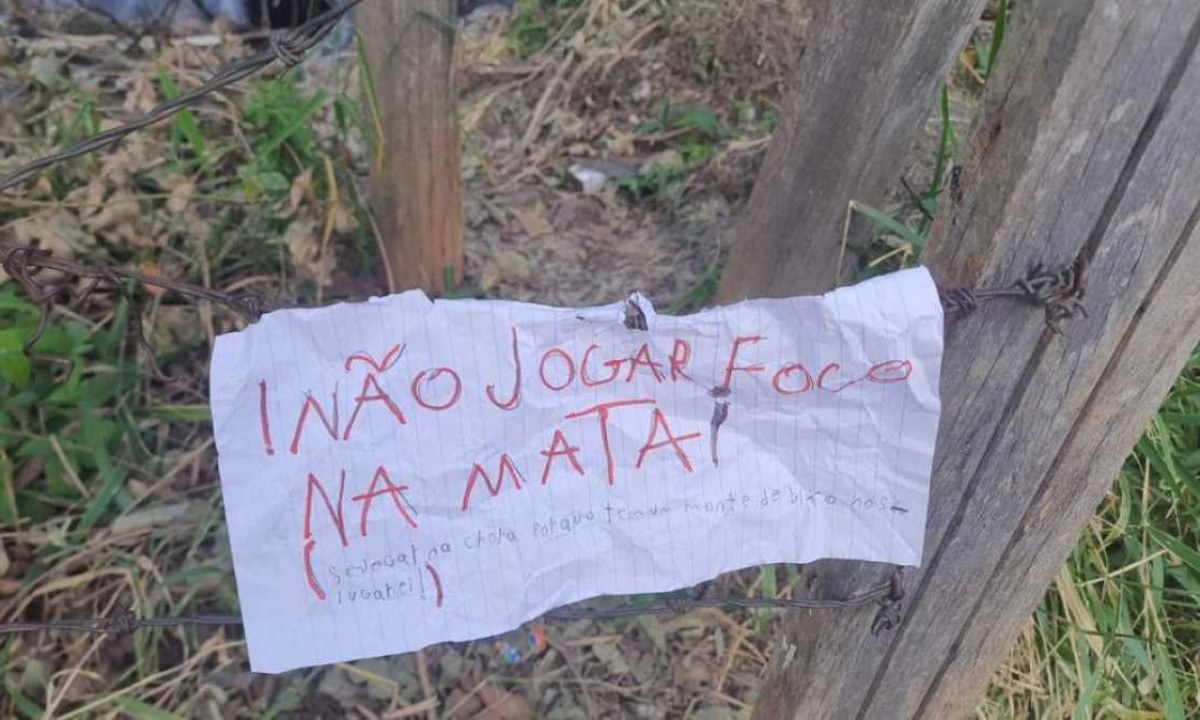 ! NÃO JOGAR FOCO
NA MATA!
(se jogar na chora porque tem um monte de bixo nos-
lugarei!)